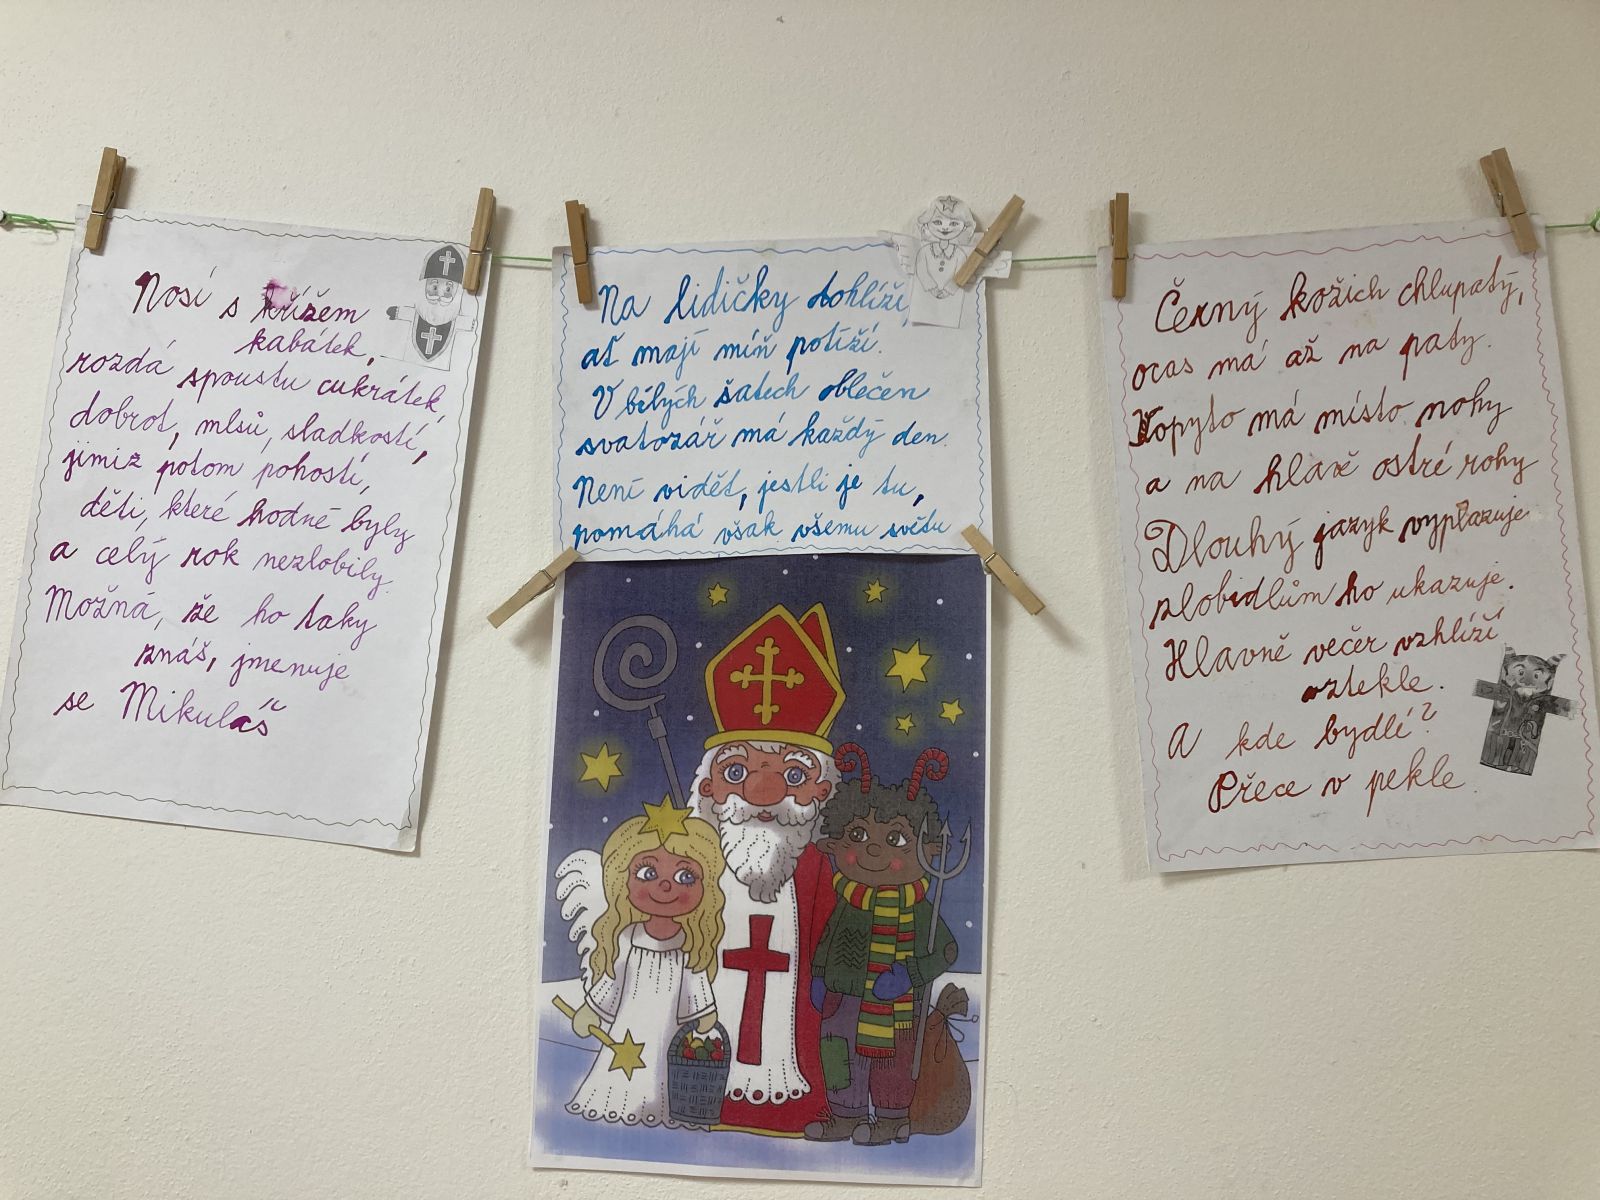 Nosí s křížem
kabátek,
rozdá spoustu cukrátek,
dobrot, mlsů, sladkostí,
jimiž potom pohostí,
děti, které hodné byly
a celý rok nezlobily.
Možná, že ho taky
znáš, jmenuje
se Mikuláš
Na lidičky dohlíží,
ať mají míň potíží.
V bílých šatech oblečen
svatozář má každý den.
Není vidět, jestli je tu,
pomáhá však všemu světu
Černý kožich chlupatý,
ocas má až na paty.
Kopyto má místo nohy
a na hlavě ostré rohy
Dlouhý jazyk vyplazuje
zlobidlům ho ukazuje.
Hlavně večer vzhlíží
vztekle.
A kde bydlí?
Přece v pekle.